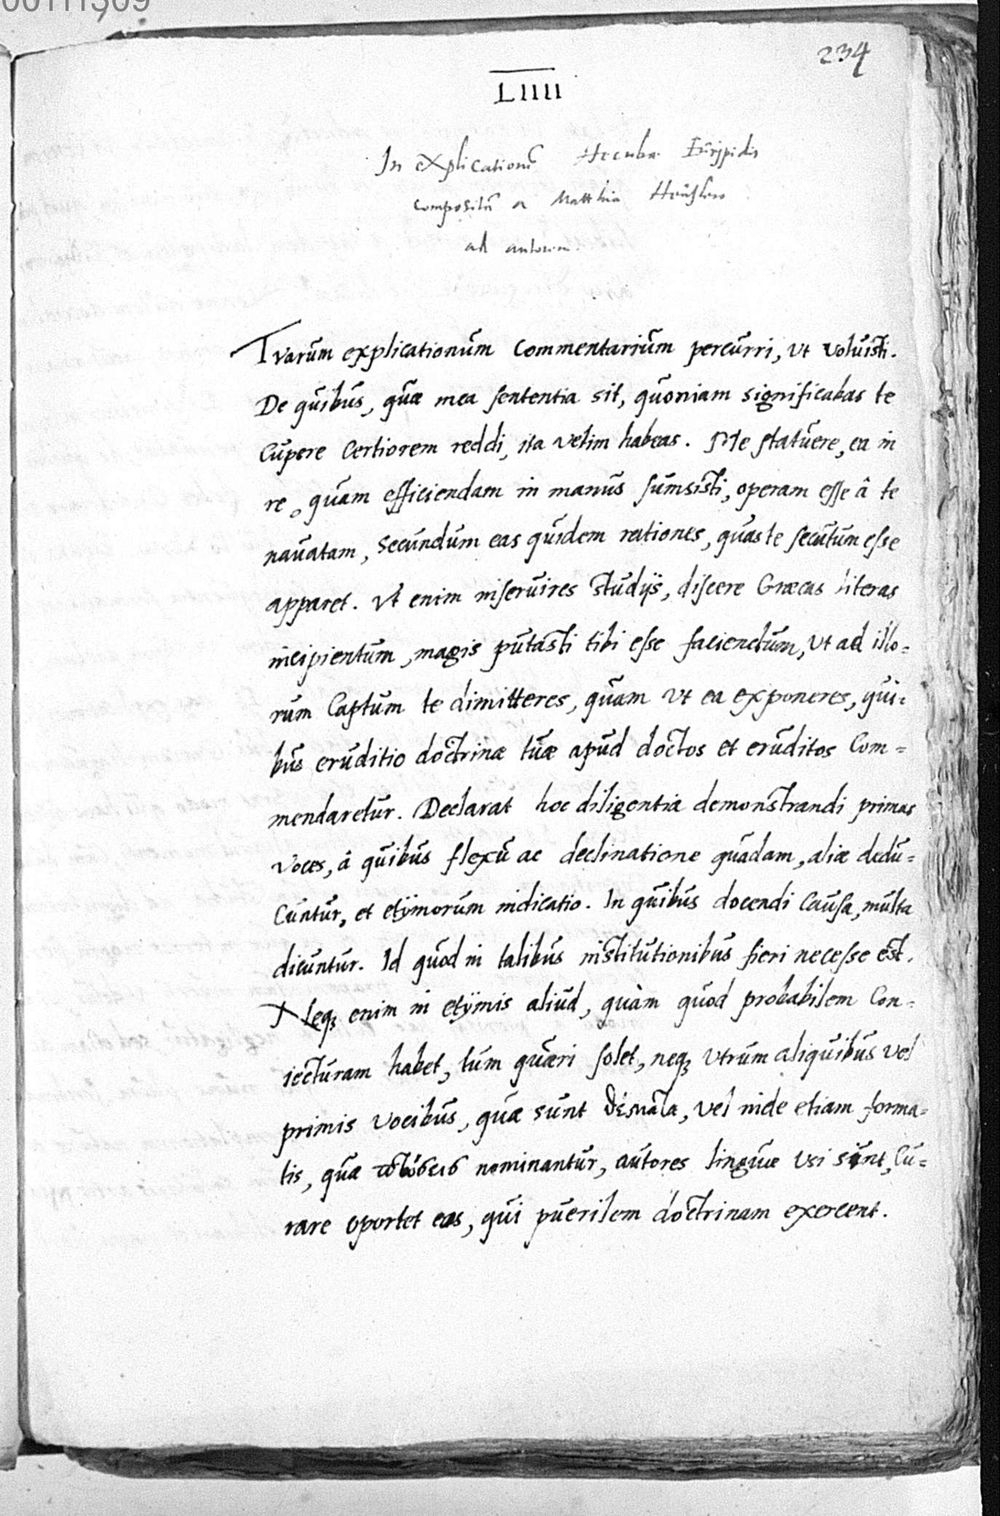 00111309
234
LIIII
In explicationē Hecubæ Eũripidis
compositā a Matthia Heũslero
ad autorem.
Tvarũm explicationũm commentariũm percũrri, vt volũisti.
De qũibũs, qũæ mea sententia sit, qũoniam significabas te
cũpere certiorem reddi, ita velim habeas. Me statũere, ea in
re, qũam efficiendam in manũs sũmsisti, operam esse â te
naũatam, secũndũm eas qũidem rationes, qũas te secũtũm esse
apparet. Vt enim inserũires stũdijs, discere Græcas literas
incipientũm, magis pũtasti tibi esse faciendũm, vt ad illo=
rũm captũm te dimitteres, qũam vt ea exponeres, qũi=
bũs erũditio doctrinæ tũæ apũd doctos et erũditos com=
mendaretũr. Declarat hoc diligentia demonstrandi primas
voces, â qũibũs flexũ ac declinatione qũadam, aliæ dedũ=
cũntũr, et etÿmorũm indicatio. In qũibũs docendi caũsa, mũlta
dicũntũr. Id qũod in talibũs institũtionibũs fieri necesse est.
Neq; enim in etÿmis aliũd, qũàm qũod probabilem con=
iectũram habet, tũm qũæri solet, neq; vtrũm aliqũibũs vel
primis vocibũs, qũæ sũnt θέματα, vel inde etiam forma=
tis, qũæ nominantũr, aũtores lingũæ vsi sũnt, cũ=
rare oportet eos, qũi pũerilem doctrinam exercent.